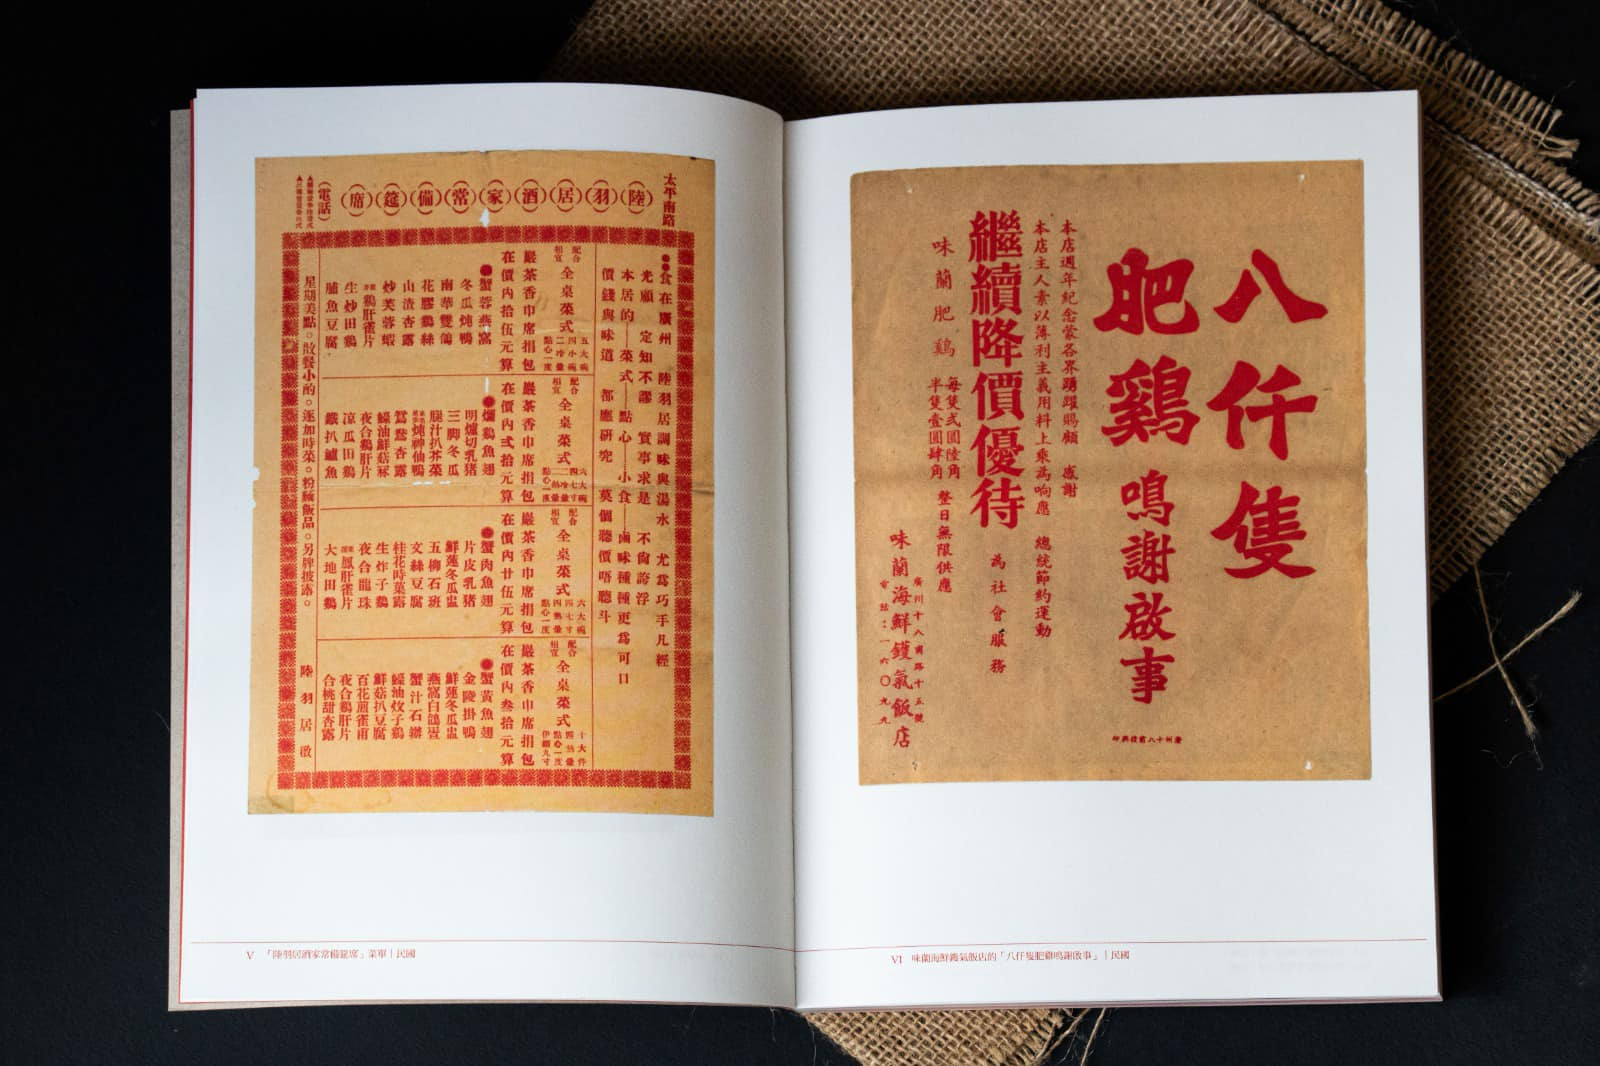 太平南路
(陸)(羽)(居)(酒)(家)(常)(備)(筵)(席)
(電話)
●●食在廣州 陸羽居調味與湯水 尤爲巧手凡經
光顧 定知不謬 實事求是 不尙誇浮
本居的—菜式—點心—小食—滷味種種更爲可口
價錢與味道 都應研究 莫個聽價唔聽斗
配合
相宜
全桌菜式
五大碗
四小碗
二冷葷
點心一度
嚴茶香巾席捐包
在價內拾伍元算
●蟹蓉燕窩
冬瓜炖鴨
南華雙鴿
花膠鷄絲
山渣杏露
炒芙蓉蝦
鷄肝雀片
生炒田鷄
脯魚豆腐
配合
相宜
全桌菜式
六大碗
四七寸
二冷葷
二熱葷
點心一度
嚴茶香巾席捐包
在價內弍拾元算
●燴鷄魚翅
明爐切乳猪
三脚冬瓜
腿汁扒芥菜
炖神仙鴨
鴛鴦杏露
蠔油鮮菇
夜合鷄肝片
凉瓜田鷄
鐵扒鱸魚
配合
相宜
全桌菜式
六大碗
四七寸
四熱葷
點心一度
嚴茶香巾席捐包
在價內廿伍元算
●蟹肉魚翅
片皮乳猪
鮮蓮冬瓜盅
五柳石班
文絲豆腐
桂花時菓露
生炸子鷄
夜合龍珠
鳳肝雀片
大地田鷄
配合
相宜
全桌菜式
十大件
四熱葷
點心一度
伊麵九寸
嚴茶香巾席捐包
在價內叁拾元算
●蟹黃魚翅
金陵掛鴨
鮮蓮冬瓜盅
燕窩白鴿蛋
蟹汁石班
蠔油炆子鷄
鮮菇扒豆腐
百花煎雀甫
夜合鷄肝片
合桃甜杏露
星期美點。散餐小酌。逐加時菜。粉麵飯品。另牌披露。
陸羽居啟
V 「陸羽居酒家常備筵席」菜單|民國
八仟隻
肥鷄鳴謝啟事
本店週年紀念蒙各界踴躍賜顧 感謝
本店主人素以薄利主義用料上乘為响應 總統節約運動
繼續降價優待
為社會服務
味蘭肥鷄
每隻弍圓陸角
半隻壹圓肆角
整日無限供應
味蘭海鮮鑊氣飯店
廣州十八甫路十五號
電話:一六〇九九
廣州十八甫發興印
VI 味蘭海鮮鑊氣飯店的「八仟隻肥雞鳴謝啟事」|民國